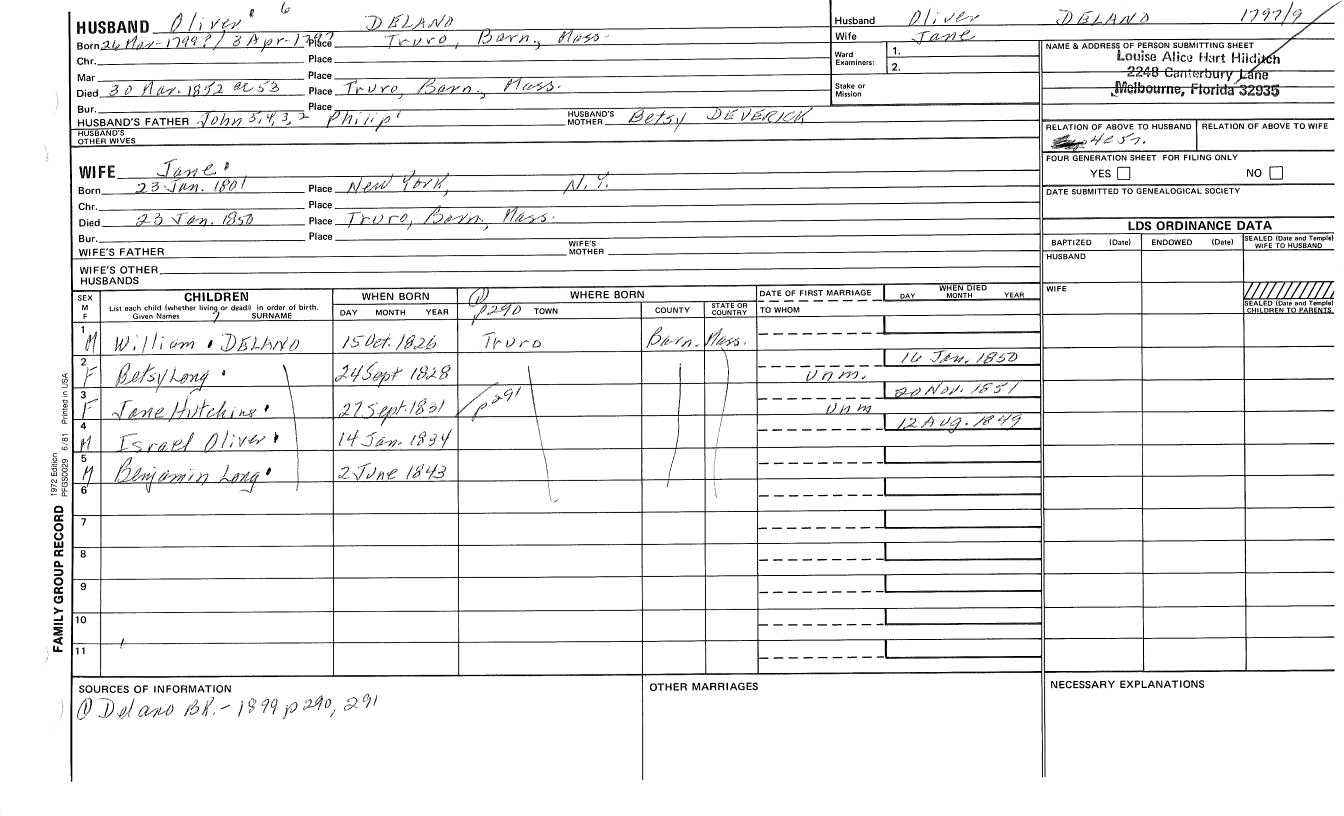 HUSBAND Oliver 6 DELANO
Born 26 Mar-1799?/3 Apr-1797 Place Truro, Barn., Mass.
Chr. Place
Mar Place
Died 30 Mar. 1852 ae 53 Place Truro, Barn., Mass.
Bur. Place
HUSBAND'S FATHER John 5,4,3,2 Philip 1 HUSBAND'S MOTHER Betsy DEVERICK
HUSBAND'S OTHER WIVES
WIFE Jane
Born 23 Jan. 1801 Place New York, N.Y.
Chr. Place
Died 23 Jan. 1850 Place Truro, Barn., Mass.
Bur. Place
WIFE'S FATHER WIFE'S MOTHER
WIFE'S OTHER HUSBANDS
Husband Oliver DELANO 1797/9
Wife Jane
Ward Examiners: 1.
2.
Stake or Mission
NAME & ADDRESS OF PERSON SUBMITTING SHEET
Louise Alice Hart Hilditch
2248 Canterbury Lane
Melbourne, Florida 32935
RELATION OF ABOVE TO HUSBAND RELATION OF ABOVE TO WIFE
4c5r.
FOUR GENERATION SHEET FOR FILING ONLY
YES NO
DATE SUBMITTED TO GENEALOGICAL SOCIETY
LDS ORDINANCE DATA
BAPTIZED (Date) ENDOWED (Date) SEALED (Date and Temple) WIFE TO HUSBAND
HUSBAND
WIFE
SEALED (Date and Temple) CHILDREN TO PARENTS
SEX M F CHILDREN WHEN BORN ① WHERE BORN DATE OF FIRST MARRIAGE WHEN DIED
List each child (whether living or dead) in order of birth. DAY MONTH YEAR p290 TOWN COUNTY STATE OR COUNTRY TO WHOM DAY MONTH YEAR
Given Names SURNAME
1 M William DELANO 15 Oct. 1826 Truro Barn. Mass.
2 F Betsy Long 24 Sept 1828 unm. 16 Jan. 1850
3 F Jane Hutchins 27 Sept. 1831 p291 unm 20 Nov. 1851
4 M Israel Oliver 14 Jan. 1834 12 Aug. 1849
5 M Benjamin Long 2 June 1843
6
7
8
9
10
11
FAMILY GROUP RECORD 1972 Edition PFGS0029 6/81 Printed in USA
SOURCES OF INFORMATION
① Delano BK. - 1899 p290, 291
OTHER MARRIAGES
NECESSARY EXPLANATIONS